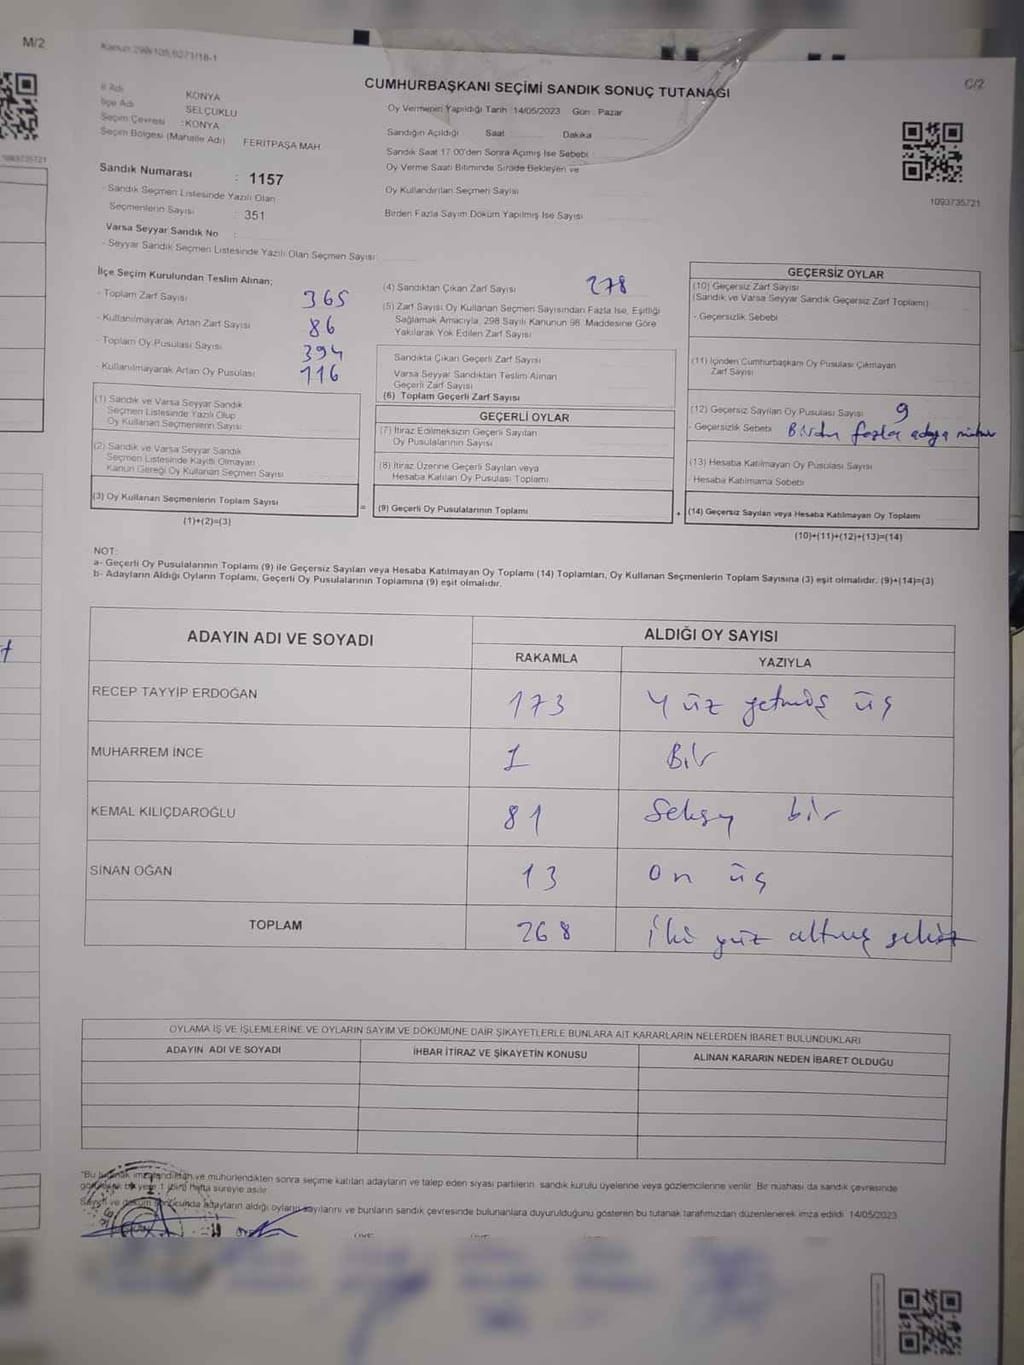 M/2
C/2
CUMHURBAŞKANI SEÇİMİ SANDIK SONUÇ TUTANAĞI
İl Adı KONYA
İlçe Adı SELÇUKLU
Seçim Çevresi :KONYA
Seçim Bölgesi (Mahalle Adı) FERİTPAŞA MAH
Sandık Numarası : 1157
- Sandık Seçmen Listesinde Yazılı Olan
Seçmenlerin Sayısı : 351
Varsa Seyyar Sandık No :
- Seyyar Sandık Seçmen Listesinde Yazılı Olan Seçmen Sayısı:
Oy Vermenin Yapıldığı Tarih :14/05/2023 Gün : Pazar
Sandığın Açıldığı Saat Dakika
Sandık Saat 17:00'den Sonra Açılmış İse Sebebi :
Oy Verme Saati Bitiminde Sırade Bekleyen ve
Oy Kullandırılan Seçmen Sayısı
Birden Fazla Sayım Döküm Yapılmış İse Sayısı
1093735721
İlçe Seçim Kurulundan Teslim Alınan;
- Toplam Zarf Sayısı 365
- Kullanılmayarak Artan Zarf Sayısı 86
- Toplam Oy Pusulası Sayısı 394
- Kullanılmayarak Artan Oy Pusulası 116
(1) Sandık ve Varsa Seyyar Sandık
Seçmen Listesinde Yazılı Olup
Oy Kullanan Seçmenlerin Sayısı
(2) Sandık ve Varsa Seyyar Sandık
Seçmen Listesinde Kayıtlı Olmayan
Kanun Gereği Oy Kullanan Seçmen Sayısı
(3) Oy Kullanan Seçmenlerin Toplam Sayısı
(1)+(2)=(3)
(4) Sandıktan Çıkan Zarf Sayısı 278
(5) Zarf Sayısı Oy Kullanan Seçmen Sayısından Fazla İse, Eşitliği
Sağlamak Amacıyla, 298 Sayılı Kanunun 98. Maddesine Göre
Yakılarak Yok Edilen Zarf Sayısı
Sandıkta Çıkan Geçerli Zarf Sayısı
Varsa Seyyar Sandıktan Teslim Alınan
Geçerli Zarf Sayısı
(6) Toplam Geçerli Zarf Sayısı
=
GEÇERLİ OYLAR
(7) İtiraz Edilmeksizin Geçerli Sayılan
Oy Pusulalarının Sayısı
(8) İtiraz Üzerine Geçerli Sayılan veya
Hesaba Katılan Oy Pusulası Toplamı
(9) Geçerli Oy Pusulalarının Toplamı
+
GEÇERSİZ OYLAR
(10) Geçersiz Zarf Sayısı
(Sandık ve Varsa Seyyar Sandık Geçersiz Zarf Toplamı)
- Geçersizlik Sebebi
(11) İçinden Cumhurbaşkanı Oy Pusulası Çıkmayan
Zarf Sayısı
(12) Geçersiz Sayılan Oy Pusulası Sayısı 9
- Geçersizlik Sebebi Birden fazla adaya mühür
(13) Hesaba Katılmayan Oy Pusulası Sayısı
Hesaba Katılmama Sebebi
(14) Geçersiz Sayılan veya Hesaba Katılmayan Oy Toplamı
(10)+(11)+(12)+(13)=(14)
NOT:
a- Geçerli Oy Pusulalarının Toplamı (9) ile Geçersiz Sayılan veya Hesaba Katılmayan Oy Toplamı (14) Toplamları, Oy Kullanan Seçmenlerin Toplam Sayısına (3) eşit olmalıdır. (9)+(14)=(3)
b- Adayların Aldığı Oyların Toplamı, Geçerli Oy Pusulalarının Toplamına (9) eşit olmalıdır.
ADAYIN ADI VE SOYADI ALDIĞI OY SAYISI
RAKAMLA YAZIYLA
RECEP TAYYİP ERDOĞAN 173 Yüz yetmiş üç
MUHARREM İNCE 1 Bir
KEMAL KILIÇDAROĞLU 81 Seksen bir
SİNAN OĞAN 13 on üç
TOPLAM 268 İki yüz altmış sekiz
OYLAMA İŞ VE İŞLEMLERİNE VE OYLARIN SAYIM VE DÖKÜMÜNE DAİR ŞİKAYETLERLE BUNLARA AİT KARARLARIN NELERDEN İBARET BULUNDUKLARI
ADAYIN ADI VE SOYADI İHBAR İTİRAZ VE ŞİKAYETİN KONUSU ALINAN KARARIN NEDEN İBARET OLDUĞU
"Bu tutanak imzalandıktan ve mühürlendikten sonra seçime katılan adayların ve talep eden siyasi partilerin sandık kurulu üyelerine veya gözlemcilerine verilir. Bir nüshası da sandık çevresinde
bir yere 1 hafta süreyle asılır
adayların aldığı oyların sayılarını ve bunların sandık çevresinde bulunanlara duyurulduğunu gösteren bu tutanak tarafımızdan düzenlenerek imza edildi. 14/05/2023